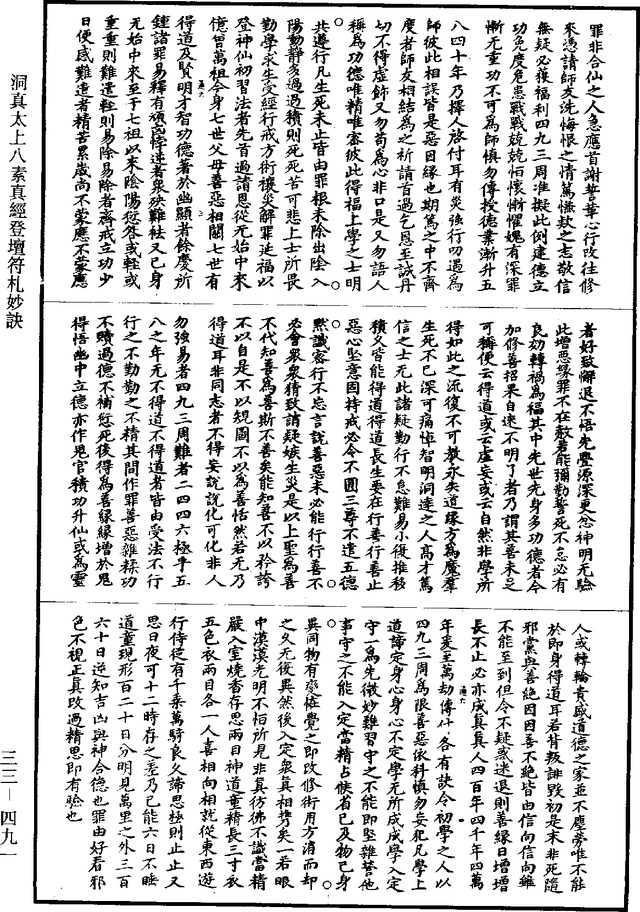 洞真太上八素真經登壇符札妙訣
三三—四九一
罪非合仙之人急應首謝誓華心行改往修
來憑請師友洗悔恨之情篤慊欵之志敬信
無疑必獲福利四九三周准擬此例建德立
功免度危患戰戰兢兢怕懷慚懼媿有深罪
慚无重功不可為師慎勿傳授德業漸升五
八四十年乃擇人啓付耳有災強行叨過為
師彼此相誤皆是惡因緣也期篤之中不齊
度者師友相結為之祈請首過乞恩至誠丹
切不得虛飾又勿苟為心非口是又勿語人
稱為功德唯精唯密彼此得福上學之士明
共遵行凡生死未止皆由罪根未除出陰入
陽動静多過過積則死死苦可悲上士所畏
勤學求生受經行戒方術禳災解罪延福以
登神仙初習法者先首過請恩從无始中來
億曾萬祖今身七世父母善惡相關七世有
得道及賢明才智功德者於幽顯者餘慶所
鍾諸罪易釋有頑囪悖逆者衆殃難祛又已身
无始中來至于七祖以來陰陽愆咎或輕或
重重則難遣輕則易除易除者齋戒立功少
日便感難遣者精苦累歲尚不蒙應不蒙應
者好致懈退不悟先舋源深更忿神明无驗
此增惡緣罪不在赦若能彌勤誓死不怠必有
良効轉禍為福其中先世先身多功德者今
加修善招果自速不明了者乃謂其善未足
可稱便云得道或云虛妄或云自然非學所
得如此之流復不可教永失道緣方為魔羣
生死不已深可痛悼智明洞達之人高才篤
信之士无此諸疑勤行不怠難易小復推移
積久皆能得道得道長生要在行善行善止
惡心堅意固持戒必令不圓三尊不遣五德
黙識密行不忘言說善惡未必能行行善不
必會衆衆猜致謗疑嫉生災是以上聖為善
不代知善為善斯不善矣能知善不以矜誇
不以自是不以規圖不以為善恬然若无乃
得道耳非同志者不得妄說說化可化非人
勿強易者四九三周難者二四四六極乎五
八之年无不得道不得道者皆由受法不行
行之不勤勤之不精其間作罪善惡雜糅功
不贖過德不補愆死後得為善緣緣增於鬼
得悟幽中立德亦作鬼官積功升仙或為靈
人或轉輪貴盛道德之家並不塵勞唯不能
於即身得道耳若背叛誹毀初是末非死隨
邪黨與善絕因因善不絕皆由信向信向雖
不能至到但令不疑惑迷退則善緣日增增
長不止必亦成真真人四百年四千年四萬
年爰至萬劫傳付各有訣令初學之人以
四九三周為限善惡依科慎勿妄犯凡學上
道諦定身心身心不定學无所成成學入定
守一為先微妙難習守之不能即堅雜營他
事守之不能入定當精占候省己及物己身
異同物有乖㩁覺之即改修術用方消而却
之久无復異然後入定衆真相勞矣一若眼
中漠漠光明不怕所見非真彷彿不識當精
嚴入室燒香存思兩目神道童精長三寸衣
五色衣兩目各一人喜相向相就從東西遊
行侍從有千乘萬騎良久諦思極則止止又
思日夜可十二時存之差乃已能六日不睡
道童現形百二十日分明見萬里之外三百
六十日逆知吉凶與神合德也罪由好看邪
色不視正真改過精思即有驗也